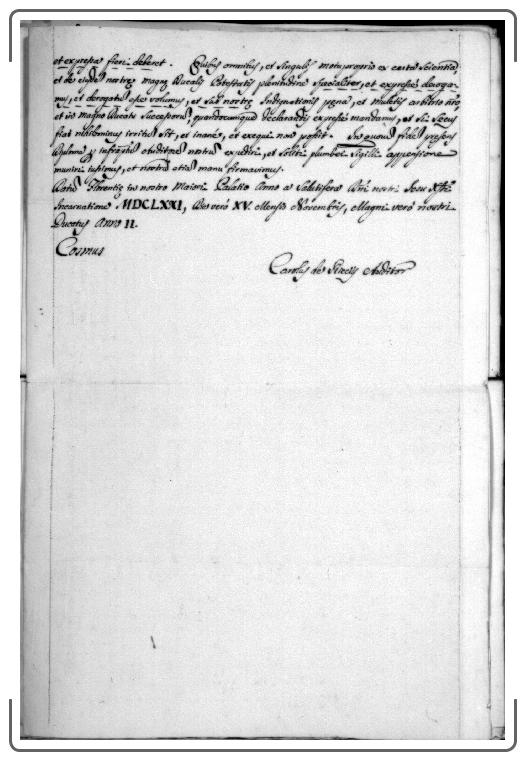 et expressa fieri deberet. Quibus omnibus, et singulis motu proprio ex certa scientia,
et de nostre magne Ducalis Potestatis plenitudine specialiter, et expresse deroga-
mus, et derogatu esse volumus, et sub nostre Indignationis pena, et mulctis arbitrio
et in magno Ducatu Successoru, quandocumque declarandis expresse mandamus, et si secus
fiat nihilominus irritu sit, et inane, et exequi non possit. In quoru fide presens
nostru expediri, et soliti plumbei Sigilli appensione
muniri iussimus, et nostra etia manu firmavimus.
Datu Florentie in nostro Maiori Palatio Anno a Salutifera Dni nostri Iesu Xti
Incarnatione MDCLXXI, Die verò XV. Mensis Novembris, Magni verò nostri
Ducatus Anno II.
Cosmus
Carolus de Auditor